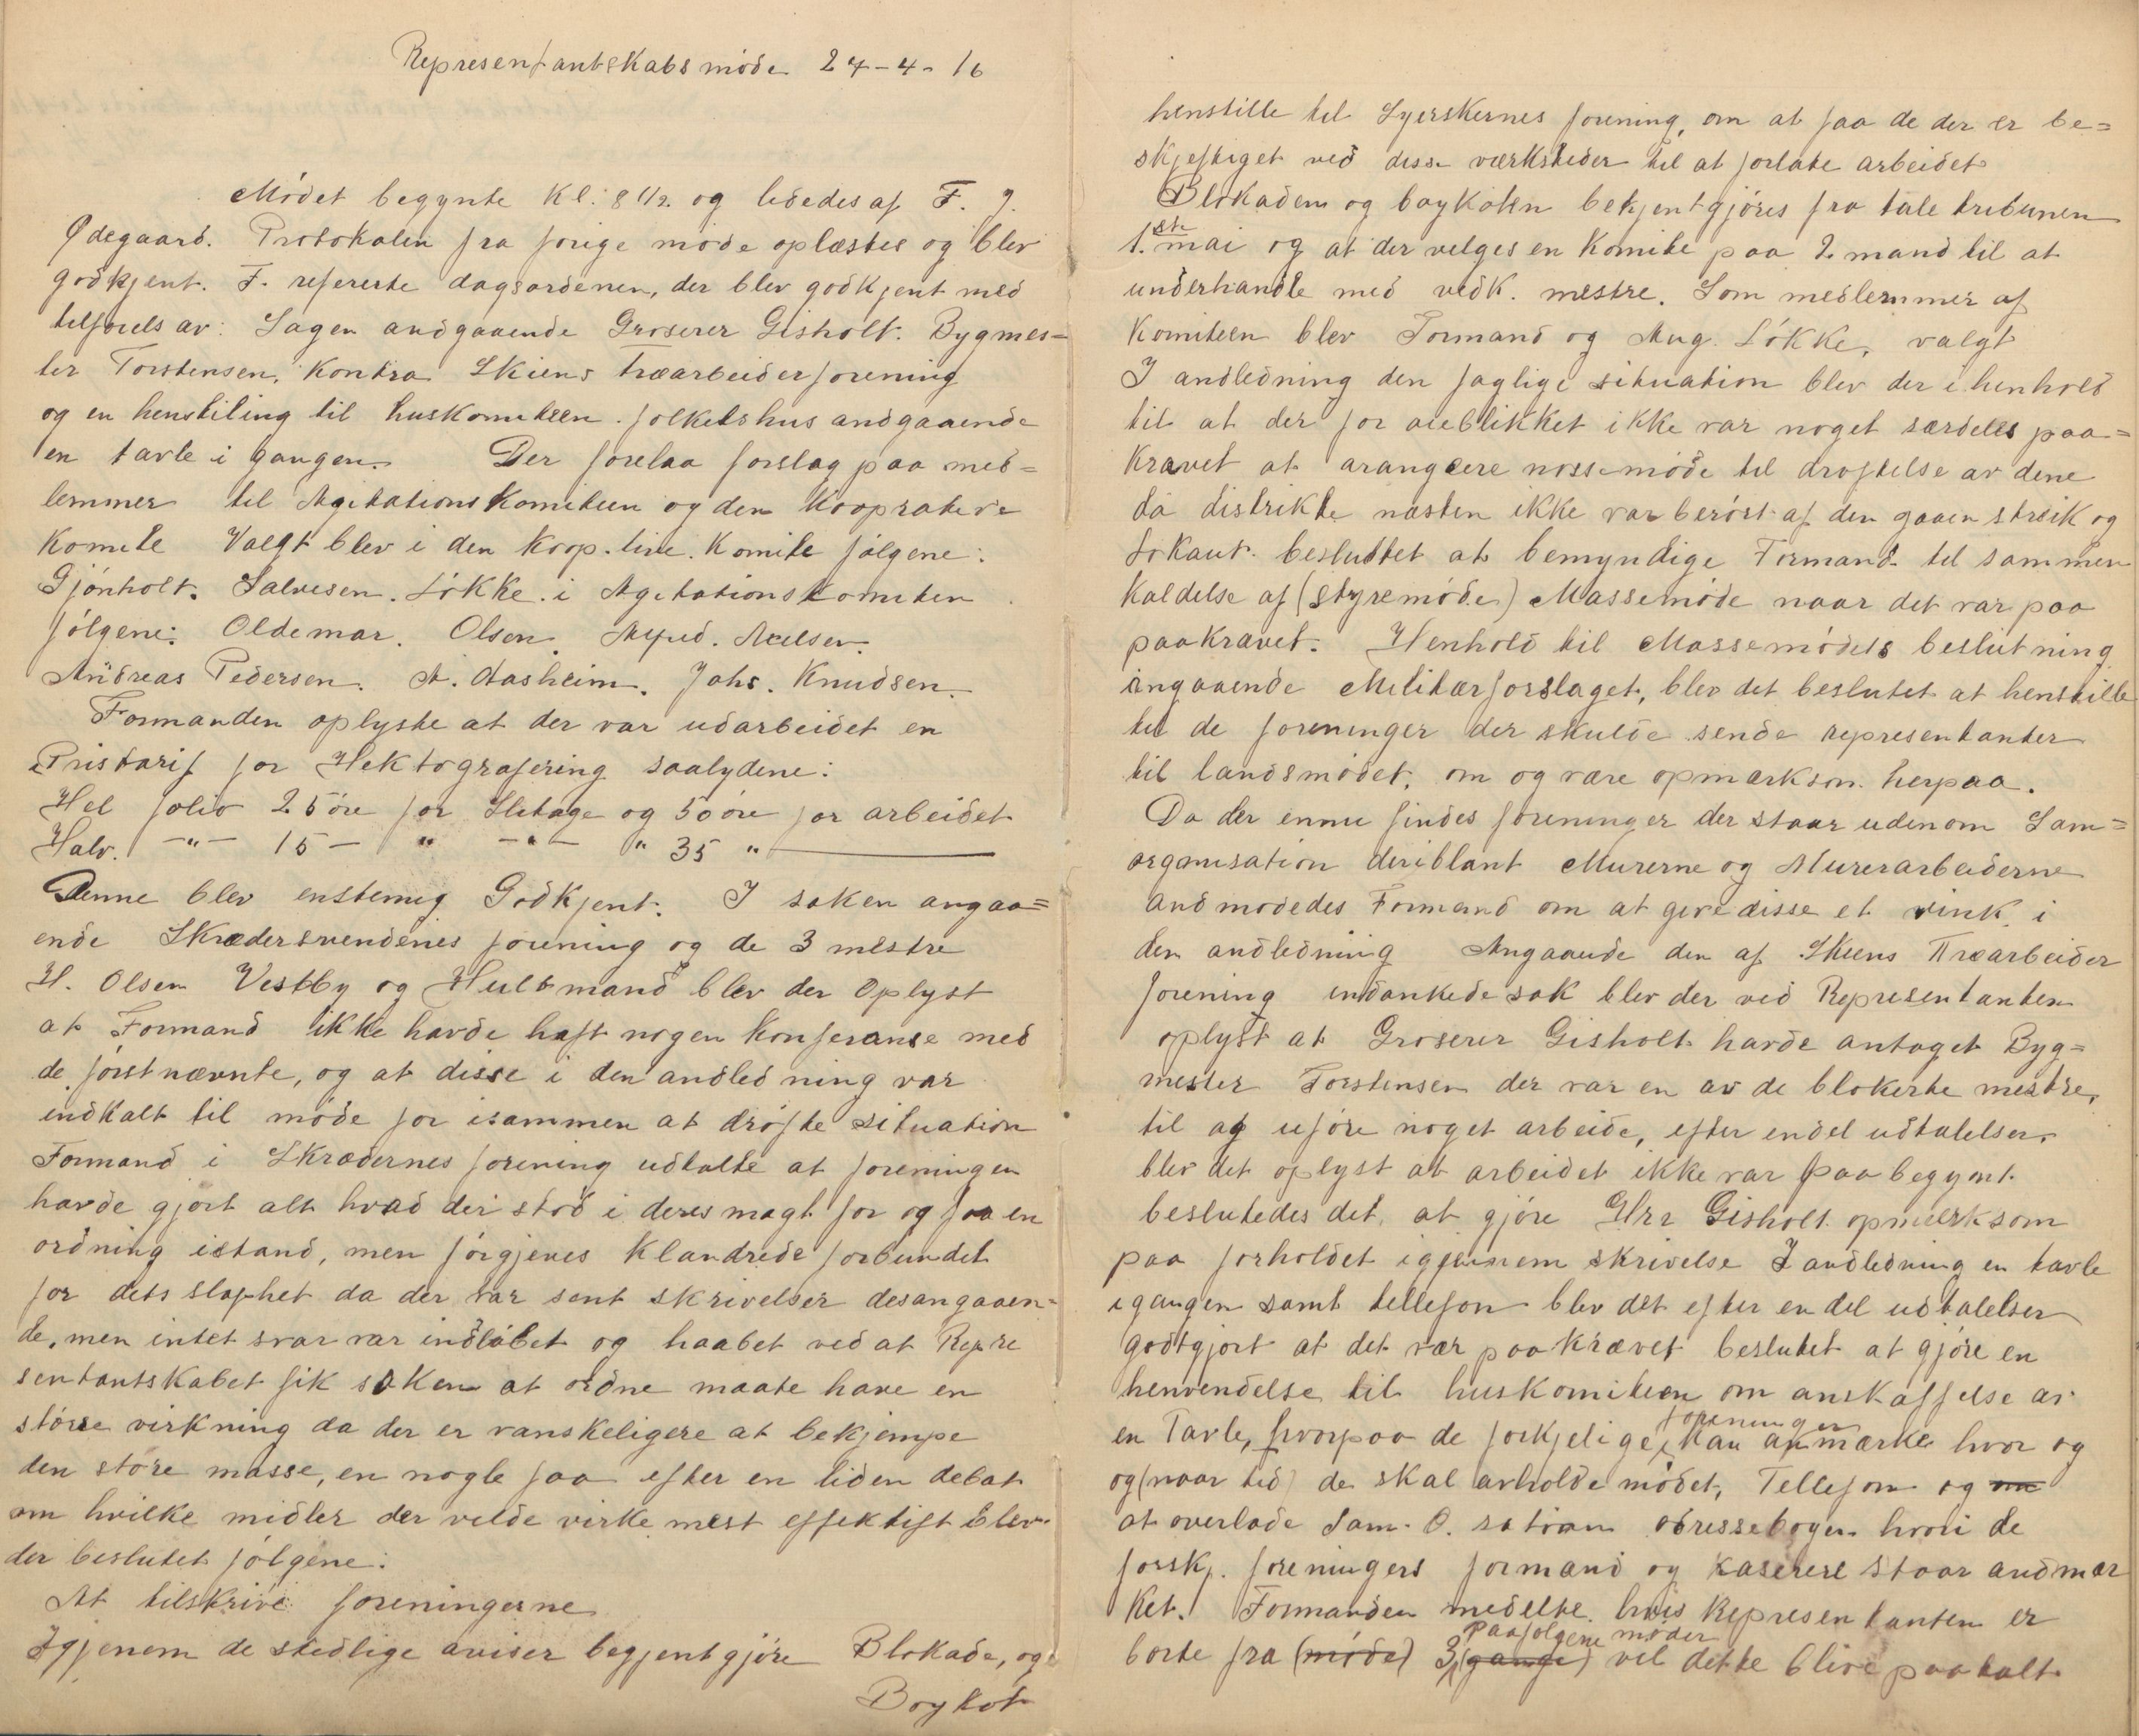 Representantskabsmöde 24-4-16
Mödet begynte Kl: 8 1/2. og lededes af F. J.
Ødegaard. Protokolen fra forige möde oplæstes og blev
godkjent. F. refererte dagsordenen, der blev godkjent med
tilföiels av: Sagen andgaaende Groserer Gisholt. Bygmes=
ter Torstensen, Kontra Skiens træarbeiderforening
og en henstiling til huskomiteen folketshus andgaaende
en tavle i gangen. Der forelaa forslag paa med=
lemmer til Agitationskomiteen og den Kooprative
Komite Valgt blev i den Koop. tive. Komite fölgene:
Gjönholt. Salvesen. Lökke. i Agitationskomiteen
fölgene: Oldemar. Olsen. Alfred. Nielsen.
Andreas Pedersen. A. Aasheim. Johs. Knudsen.
Formanden oplyste at der var udarbeidet en
Pristarif for Hektografering saalydene:
Hel folio 25 öre for Slitage og 50 öre for arbeidet
Halv. -"- 15 - " -"- " 35 "
Denne blev enstemig Godkjent. I saken angaa=
ende Skrædersvendenes forening og de 3 mestre
H. Olsen Vestby og Hultmand blev der Oplyst
at Formand ikke havde haft nogen Konferanse med
de förstnævnte, og at disse i den andledning var
indkalt til möde for isammen at dröfte situation
Formand i Skrædernes forening udtalte at foreningen
havde gjort alt hvad der stod i deres magt for og faa en
ordning istand, men förgjeves Klandrede forbundet
for dets slaphet da der var sent skrivelser desangaaen=
de, men intet svar var indlöbet og haabet ved at Repre
sentantskabet fik saken at ordne maate have en
störse virkning da der er vanskeligere at bekjempe
den store masse, en nogle faa efter en liden debat
om hvilke midler der vilde virke mest effektift blev
der beslutet fölgene:
At tilskrive foreningerne
Igjenem de stedlige aviser begjentgjöre Blokade, og
Boykot
henstille til Syerskernes forening, om at faa de der er be=
skjeftiget ved disse værksteder til at forlate arbeidet
Blokaden og boykoten bekjentgjöres fra taletribunen
1.ste mai og at der velges en Komite paa 2 mand til at
underhandle med vedk. mestre. Som medlemmer af
Komiteen blev Formand og Aug. Lökke, valgt
I andledning den faglige situation blev der i henhold
til at der for øieblikket ikke var noget særdeles paa=
Kravet at arangeere massemöde til drøftelse av dene
da distrikte næsten ikke var berört af den gaaen streik og
Lokaut. besluttet at bemyndige Formand til sammen
Kaldelse af (styremöde) Massemöde naar det var paa
paakrævet. Henhold til Massemödets beslutning
angaaende Militærforslaget, blev det beslutet at henstille
til de foreninger der skulde sende representanter
til landsmödet, om og være opmærksom herpaa.
Da der ennu findes foreninger der staar udenom Sam=
organisation deriblant Murerne og Murerarbeiderne
andmodedes Formand om at give disse et vink i
den andledning Angaaende den af Skiens Træarbeider
forening indankede sak blev der ved Representanten
oplyst at Groserer Gisholt havde antaget Byg=
mester Torstensen der var en av de blokerte mestre,
til og uföre noget arbeide, efter endel udtalelser
blev det oplyst at arbeidet ikke var paabegynt.
beslutedes det, at gjöre Hrr Gisholt opmerksom
paa forholdet igjennem skrivelse I andledning en tavle
i gangen samt tellefon blev det efter en del udtalelser
godtgjort at det var paakrævet beslutet at gjöre en
henvendelse til huskomiteen om anskaffelse av
en Tavle, hvorpaa de forkjelige foreninger kan anmærke hvor og
og (naar tid) de skal avholde mödet, Tellefon og om
at overlade Sam. O. sation adressebogen hvori de
forskj. foreningers formand og kaserere staar andmær
ket. Formanden medelte. hvis Representanten er
borte fra (möde) 3 (gange) paafölgene möder vil dette blive paatalt